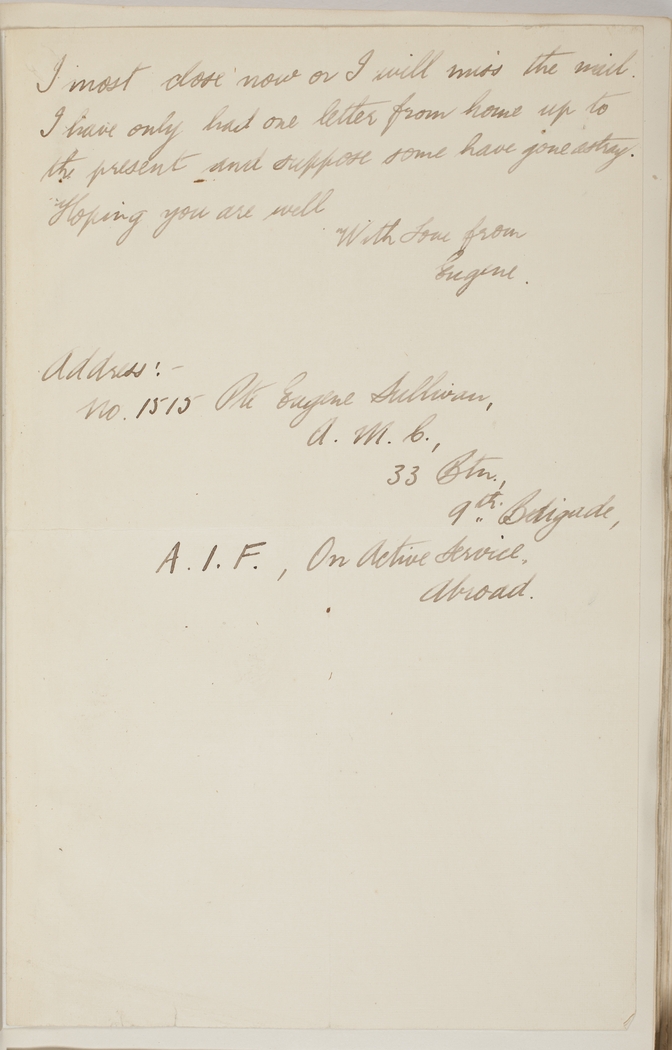 I most close now or I will miss the mail.
I have only had one letter from home up to
the present and suppose some have gone astray.
Hoping you are well
With Love from
Eugene.
Address:-
No. 1515 Pte Eugene Sullivan,
A. M. C.,
33 Btn.,
9th. Brigade,
A. I. F., On Active Service,
Abroad.